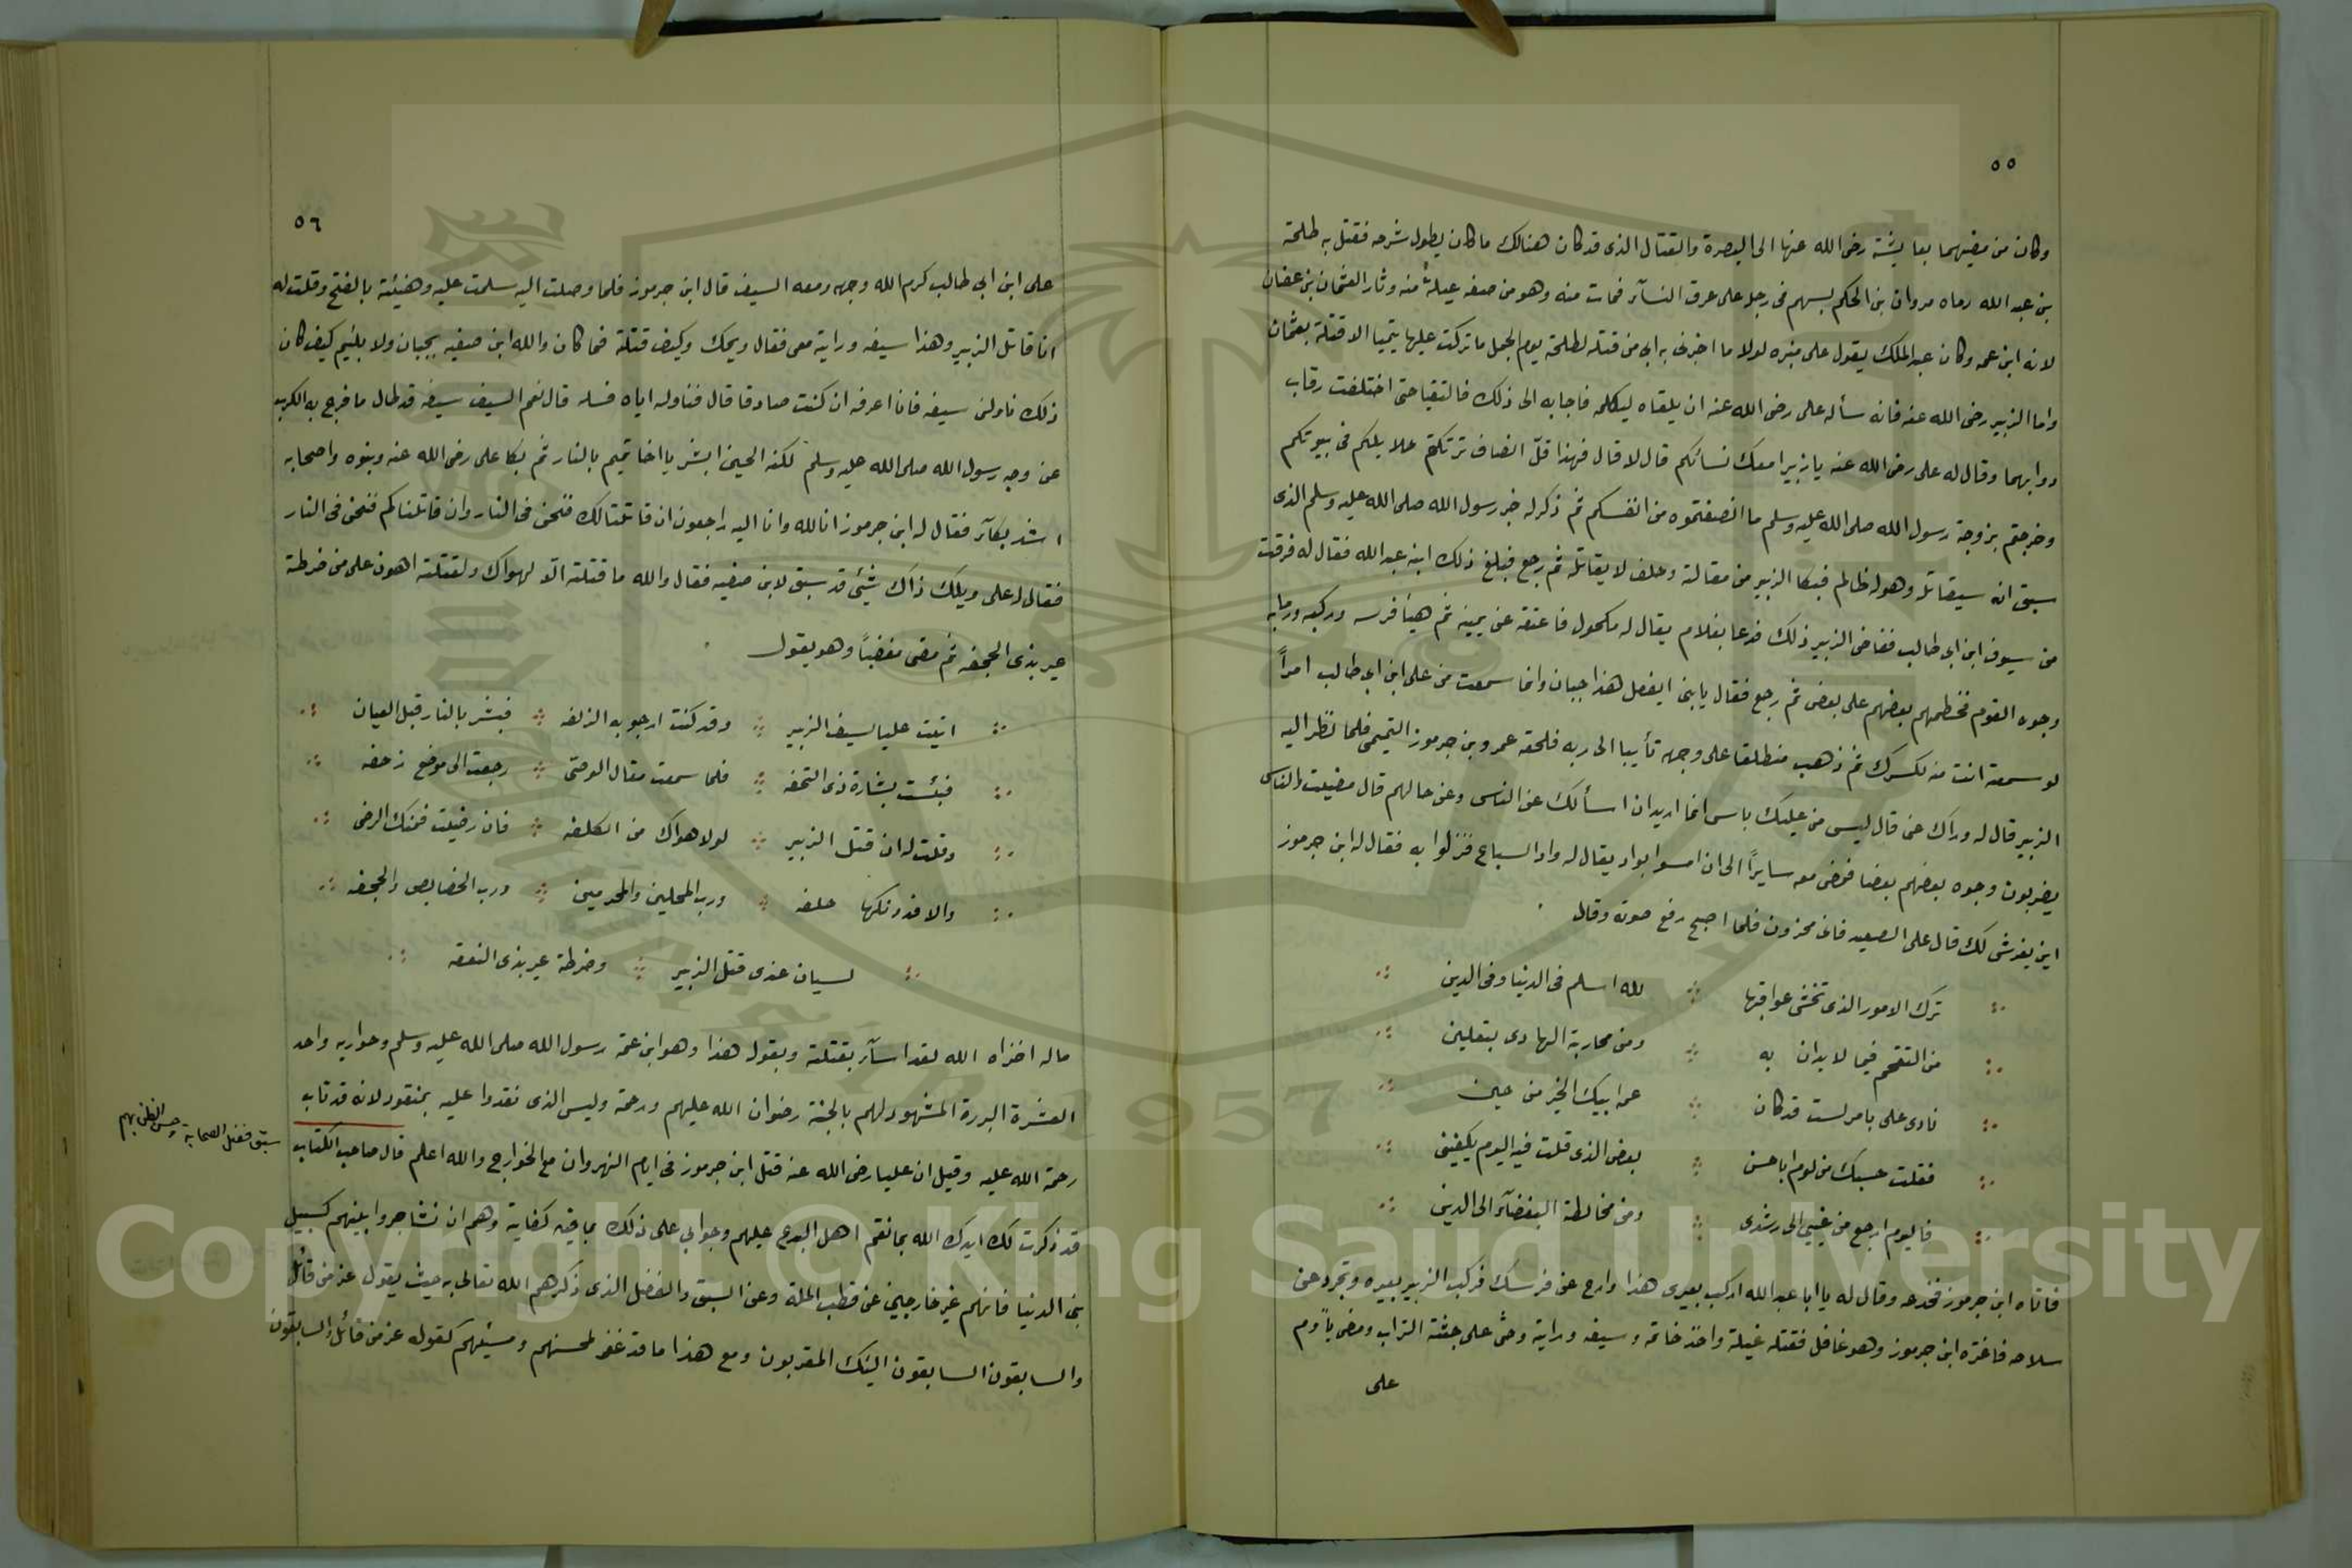 ٥٥
وكان من مضيهما بعايشة رضى الله عنها الى البصرة والقتال الذى قد كان هنالك ما كان يطول شرحه فقتل به طلحة
بن عبد الله رماه مروان بن الحكم بسهم فى رجل على عرق النسآء فمات منه وهو من صفه غيلةً منه وثار العثمان بن عفان
لانه ابن عمه وكان عبد الملك يقول على منبره لولا ما اخبرنى به ابى من قتله لطلحة يوم الجمل ما تركت عليها يتيميا الا قتلة بعثمان
واما الزبير رضى الله عنه فانه سأله على رضى الله عنه ان يلقاه ليكلمه فاجابه الى ذلك فالتقيا حتى اختلفت رقاب
دوابهما وقال له على رضى الله عنه يا زبير امعك نسائكم قال لا قال فهذا قلّ انصاف تركتم حلايلكم فى بيوتكم
وخرجتم بزوجة رسول الله صلى الله عليه وسلم ما انصفتموه من انفسكم ثم ذكر له خبر رسول الله صلى الله عليه وسلم الذى
سبق انه سيقاتله وهو له ظالم فبكا الزبير من مقالة وحلف لا يقاتله ثم رجع فبلغ ذلك ابنه عبد الله فقال له فرقت
من سيوف ابن ابى طالب فغاض الزبير ذلك فدعا بغلام يقال له مكحول فاعتقه عن يمينه ثم هيئا فرسه وركبه ورما به
وجوه القوم فخطمهم بعضهم على بعض ثم رجع فقال يا بنى ايفعل هذا جبان وانما سمعت من على ابن ابى طالب امراً
لو سمعته انت منه لكسرك ثم ذهب منطلقا على وجهه تأييبا الى ربه فلحقه عمرو بن جرموز التميمى فلما نظر اليه
الزبير قال له وراك عنى قال ليس من عليك باس انما اريد ان اسألك عن الناس وعن حالهم قال مضيت والناس
يضربون وجوه بعضهم بعضا فمضى معه سايرًا الى ان امسوا بواد يقال له واد السباع فنزلوا به فقال له ابن جرموز
اين يفرش لك قال على الصعيد فانى محزون فلما اصبح رفع صوته وقال
ترك الامور الذى تخشى عواقبها لله اسلم فى الدنيا وفى الدين
من التقحم فيما لا يدان به ومن محاربة الهادى بتقلين
نادى على بامر لست قد كان عمر ابيك الخير من حين
فقلت حسبك من لوم ابا حسن بعض الذى قلت فيه اليوم يكفينى
فاليوم ارجع من غيى الى رشدى ومن مخالطة البغضآء الى الدين
فاتاه ابن جرموز فخدعه وقال له يا ابا عبد الله اركب بعيرى هذا وارح عن فرسك فركب الزبير بعيره وتجرد عن
سلاحه فاغتره ابن جرموز وهو غافل فقتله غيلة واخذ خاتمه وسيفه ورايته وحثى على جثته التراب ومضى ياًوم
على
٥٦
على ابن ابي طالب كرم الله وجهه ومعه السيف قال ابن جرموز فلما وصلت اليه سلمت عليه وهنيئته بالفتح وقلت له
انا قاتل الزبير وهذا سيفه ورايته معى فقال ويحك وكيف قتلته فما كان والله ابن صفيه بجبان ولا بلئيم كيف كان
ذلك ناولنى سيفه فانا اعرفه ان كنت صادقا قال فناوله اياه فسله قال نعم السيف سيفه قد طال ما فرج به الكرب
عن وجه رسول الله صلى الله عليه وسلم لكنه الحين ابشر يا اخا تميم بالنار ثم بكا على رضى الله عنه وبنوه واصحابه
اشد بكآء فقال له ابن جرموز انا لله وانا اليه راجعون ان قاتلنا لك فنحن فى النار وان قاتلناكم فنحن فى النار
فقال له على ويلك ذاك شئ قد سبق لابن صفيه فقال والله ما قتلته الّا لهواك ولقتلته اهون على من ضرطة
عير بذى الجحفه ثم مضى مغضبًا وهو يقول
اتيت عليا بسيف الزبير وقد كنت ارجو به الزلفه فبشر بالنار قبل العيان
فبئست بشارة ذى التحفه فلما سمعت مقال الوصى رجعت الى موضع زحفه
وقلت له ان قتل الزبير لولا هواك من الكلفه فان رضيت فمنك الرضى
والا فدونكها حلفه ورب المحلين والمحرمين ورب الخصايص والجحفه
لسيان عندى قتل الزبير وضرطة عير بذى النعفه
ماله اخزاه الله لقد اسآء بقتلته وبقول هذا وهو ابن عمة رسول الله صلى الله عليه وسلم وحواريه واحد
العشرة البررة المشهود لهم بالجنة رضوان الله عليهم ورحمته وليس الذى نقدوا عليه بمنقود لانه قد تاب
رحمة الله عليه وقيل ان عليا رضى الله عنه قتل ابن جرموز فى ايام النهروان مع الخوارج والله اعلم قال صاحب الكتاب
سبق فضل الصحابة وحسن الظن بهم
قد ذكرت لك ايدك الله بما نقم اهل البدع عليهم وجوابى على ذلك بما فيه كفاية وهم ان تشاجروا بينهم كسبيل
بنى الدنيا فانهم غير خارجين عن قطب الملة وعن السبق والفضل الذى ذكرهم الله تعالى به حيث يقول عز من قائل
والسابقون السابقون اليئك المقربون ومع هذا ما قد غفر لمحسنهم ومسيئهم كقوله عز من قائل والسابقون
Copyright © King Saud University
1957